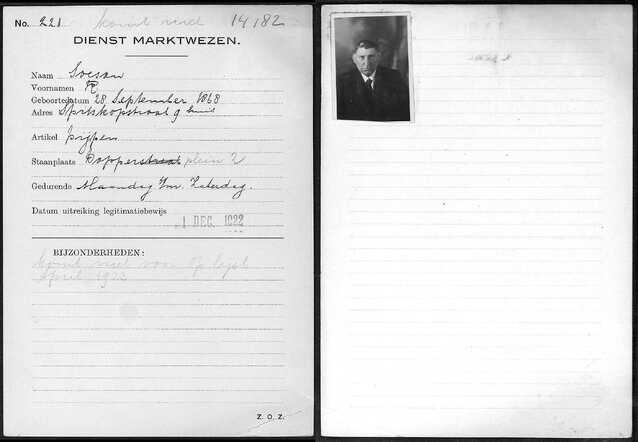 No. 221 komt niet 14182
DIENST MARKTWEZEN.
Naam Soesan
Voornamen R
Geboortedatum 28 September 1868
Adres Spitskopstraat 9 huis
Artikel pijpen
Staanplaats Dapperstraat plein 2
Gedurende Maandag t/m. Zaterdag.
Datum uitreiking legitimatiebewijs
1 DEC. 1922
BIJZONDERHEDEN:
komt niet voor op lijst
April 1922
Z. O. Z.